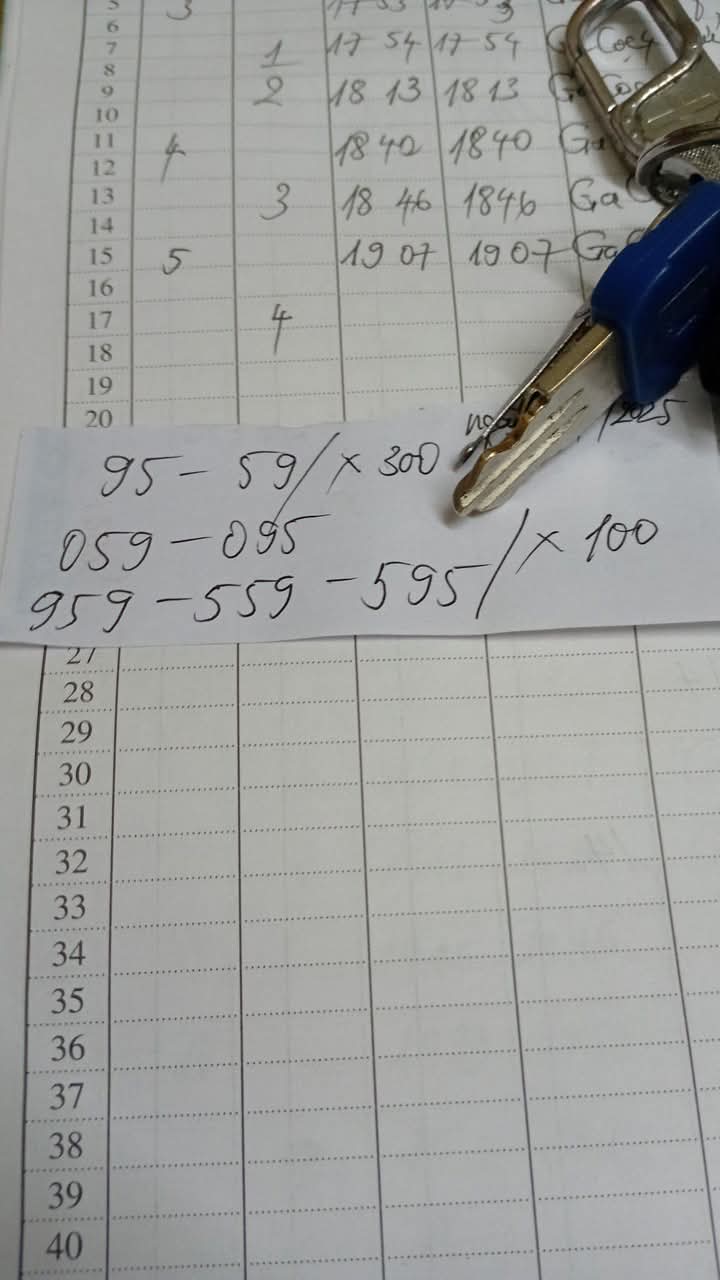 6
7 1 17 54 17 54
8
9 2 18 13 18 13
10
11 4 18 40 1840
12
13 3 18 46 1846 Ga
14
15 5 19 07 19 07 Ga
16
17 4
18
19
20
95 - 59 / x 300
059 - 095
959 - 559 - 595 / x 100
27
28
29
30
31
32
33
34
35
36
37
38
39
40